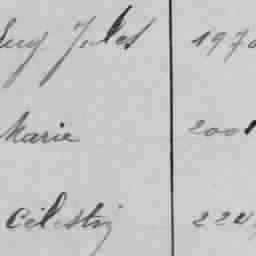 Eug Jules 197
Marie 2001
Célestin 224